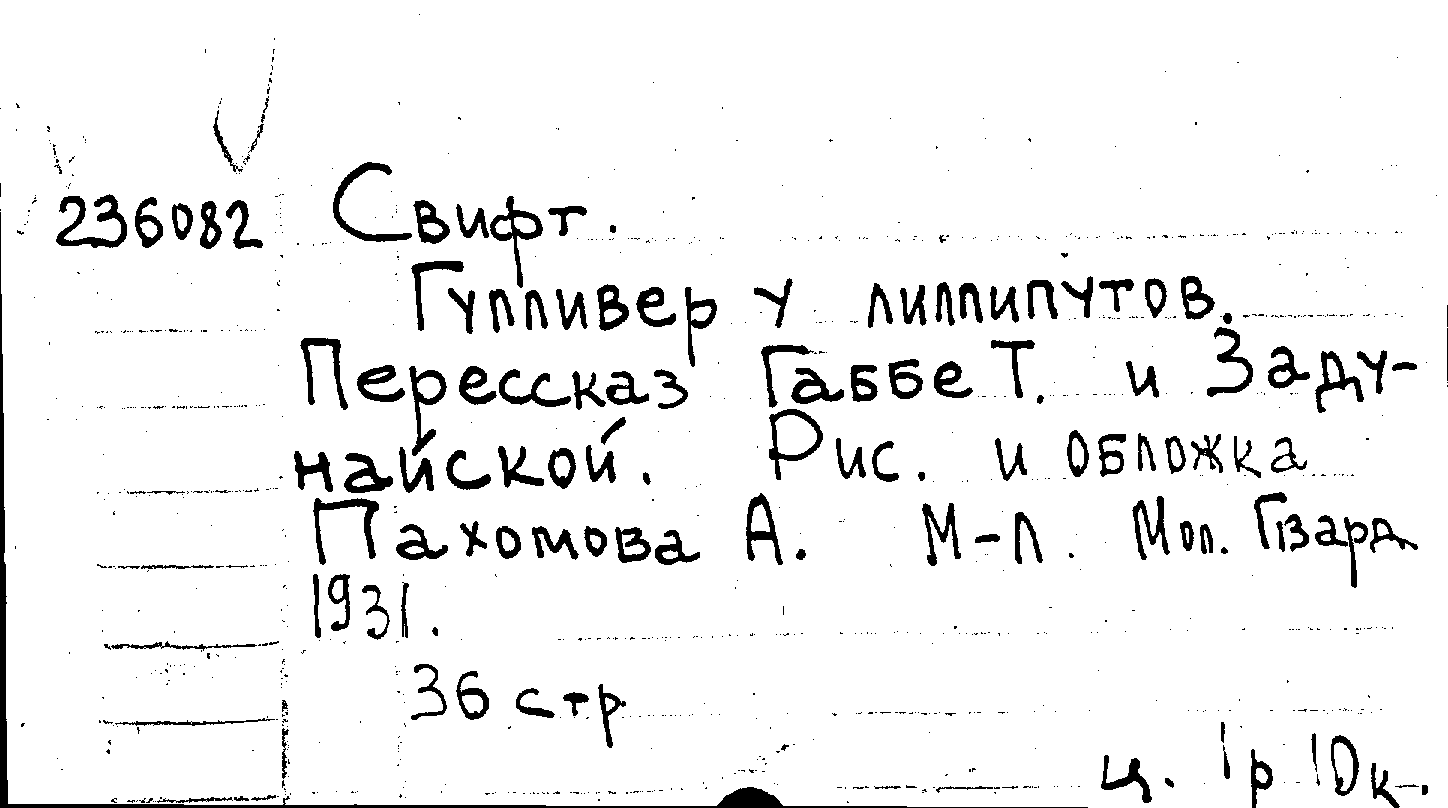 236082 Свифт.
Гулливер у лиллипутов.
Перессказ Габбе Т. и Заду-
найской. Рис. и обложка
Пахомова А. М-Л. Мол. Гвард
1931.
36 стр
ц. 1р 10к.